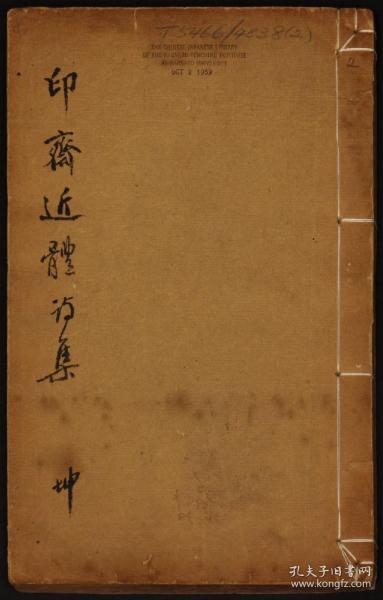 T5466/4838(2)
THE CHINESE-JAPANESE LIBRARY
OF THE HARVARD-YENCHING INSTITUTE
AT HARVARD UNIVERSITY
OCT 2 1953
2
印齋近體诗集 坤
孔夫子旧书网